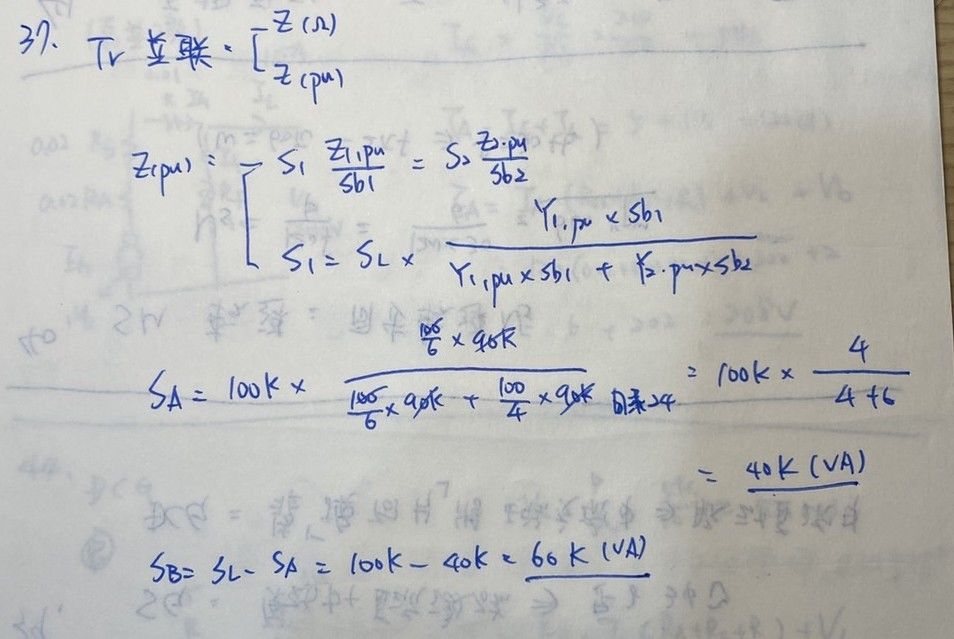 37. Tr 並联: Z(Ω)
Z(pu)
Z(pu): S1 Z1,pu/Sb1 = S2 Z2.pu/Sb2
S1 = SL × (Y1.pu × Sb1)/(Y1,pu × Sb1 + Y2.pu × Sb2)
SA = 100K × (100/6 × 90K)/(100/6 × 90K + 100/4 × 90K) 同乘24 = 100K × 4/(4+6)
= 40K (VA)
SB = SL - SA = 100K - 40K = 60K (VA)